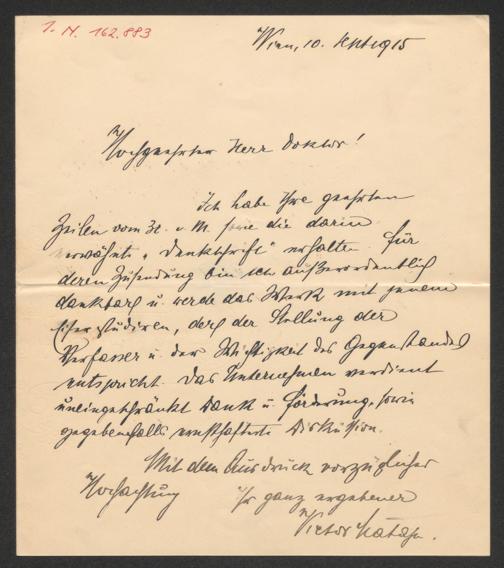 I. N. 162.883
Wien, 10. Sept. 1915
Hochgeehrter Herr Doktor!
Ich habe Ihre geehrten
Zeilen vom 30. v. M. sowie die darin
erwähnte „Denkschrift" erhalten. Für
deren Zusendung bin ich außerordentlich
dankbar u. werde das Werk mit jenem
Eifer studiren, der der Stellung der
Verfasser u. der Wichtigkeit des Gegenstandes
entspricht. Das Unternehmen verdient
uneingeschränkt Dank u. Förderung, sowie
gegebenfalls ernsthafteste Diskussion.
Mit dem Ausdruck vorzüglicher
Hochachtung Ihr ganz ergebener
Victor